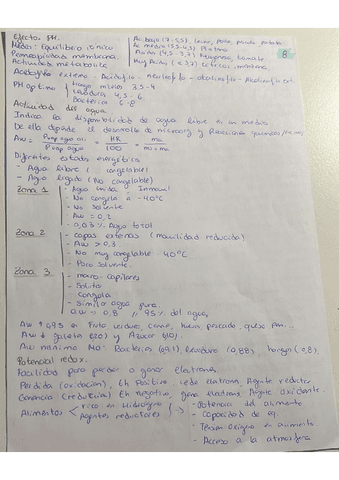 Efecto PH.
Medio: Equilibrio iónico
Permeabilidad membrana
Actividad metabólica
Ac bajo (7-5,5). Leche, pavo, patata
Ac medio (5,5-4,5) Plátano
Ácidos (4,5-3,7) Mayonesa, tomate
Muy ácidos (<3,7) Cítricos, manzana
8
Acidófilo extremo - Acidófilo - neutrófilo - alcalófilo - Alcalófilo ext
PH óptimo
hongo mohos 3,5-4
Levadura 4,5-6
Bacteria 6-8
Actividad del agua
Indica la disponibilidad de agua libre en un medio
De ella depende el desarrollo de microorg y Reacciones químicas
Aw = = HR/100 =
Diferentes estados energéticos
- Agua libre (congelable)
- Agua ligado (No congelable)
Zona 1
- Agua unida: Inmovil
- No congela a -40ºC
- No solvente
- Aw = 0,2
- 0,03% Agua total
Zona 2
- capas externas (movilidad reducida)
- Aw > 0,3
- No muy congelable -40ºC
- Poco solvente.
Zona 3
- macro-capilares
- Solvto
- Congela
- Similar agua pura
aw ~ 0,8 // 95% del agua,
Aw ↑ 0,95 en fruta verdura, carne, huevo pescado, queso pan...
Aw ↓ Galleta (20) y Azúcar (10).
Aw mínimo MO: Bacterias (0,91) Levadura (0,88), hongo (0,8).
Potencial redox.
Facilidad para perder o ganar electrones
Pérdida (oxidación), Eh Positivo. cede electrones, Agente reductor
Ganancia (reducción) Eh negativo, gana electrones, Agente oxidante
Alimentos
rico en Hidrógeno
Agentes reductores
- Potencia del alimento
- Capacidad de eq.
- Tensión oxígeno en alimento
- Acceso a la atmósfera